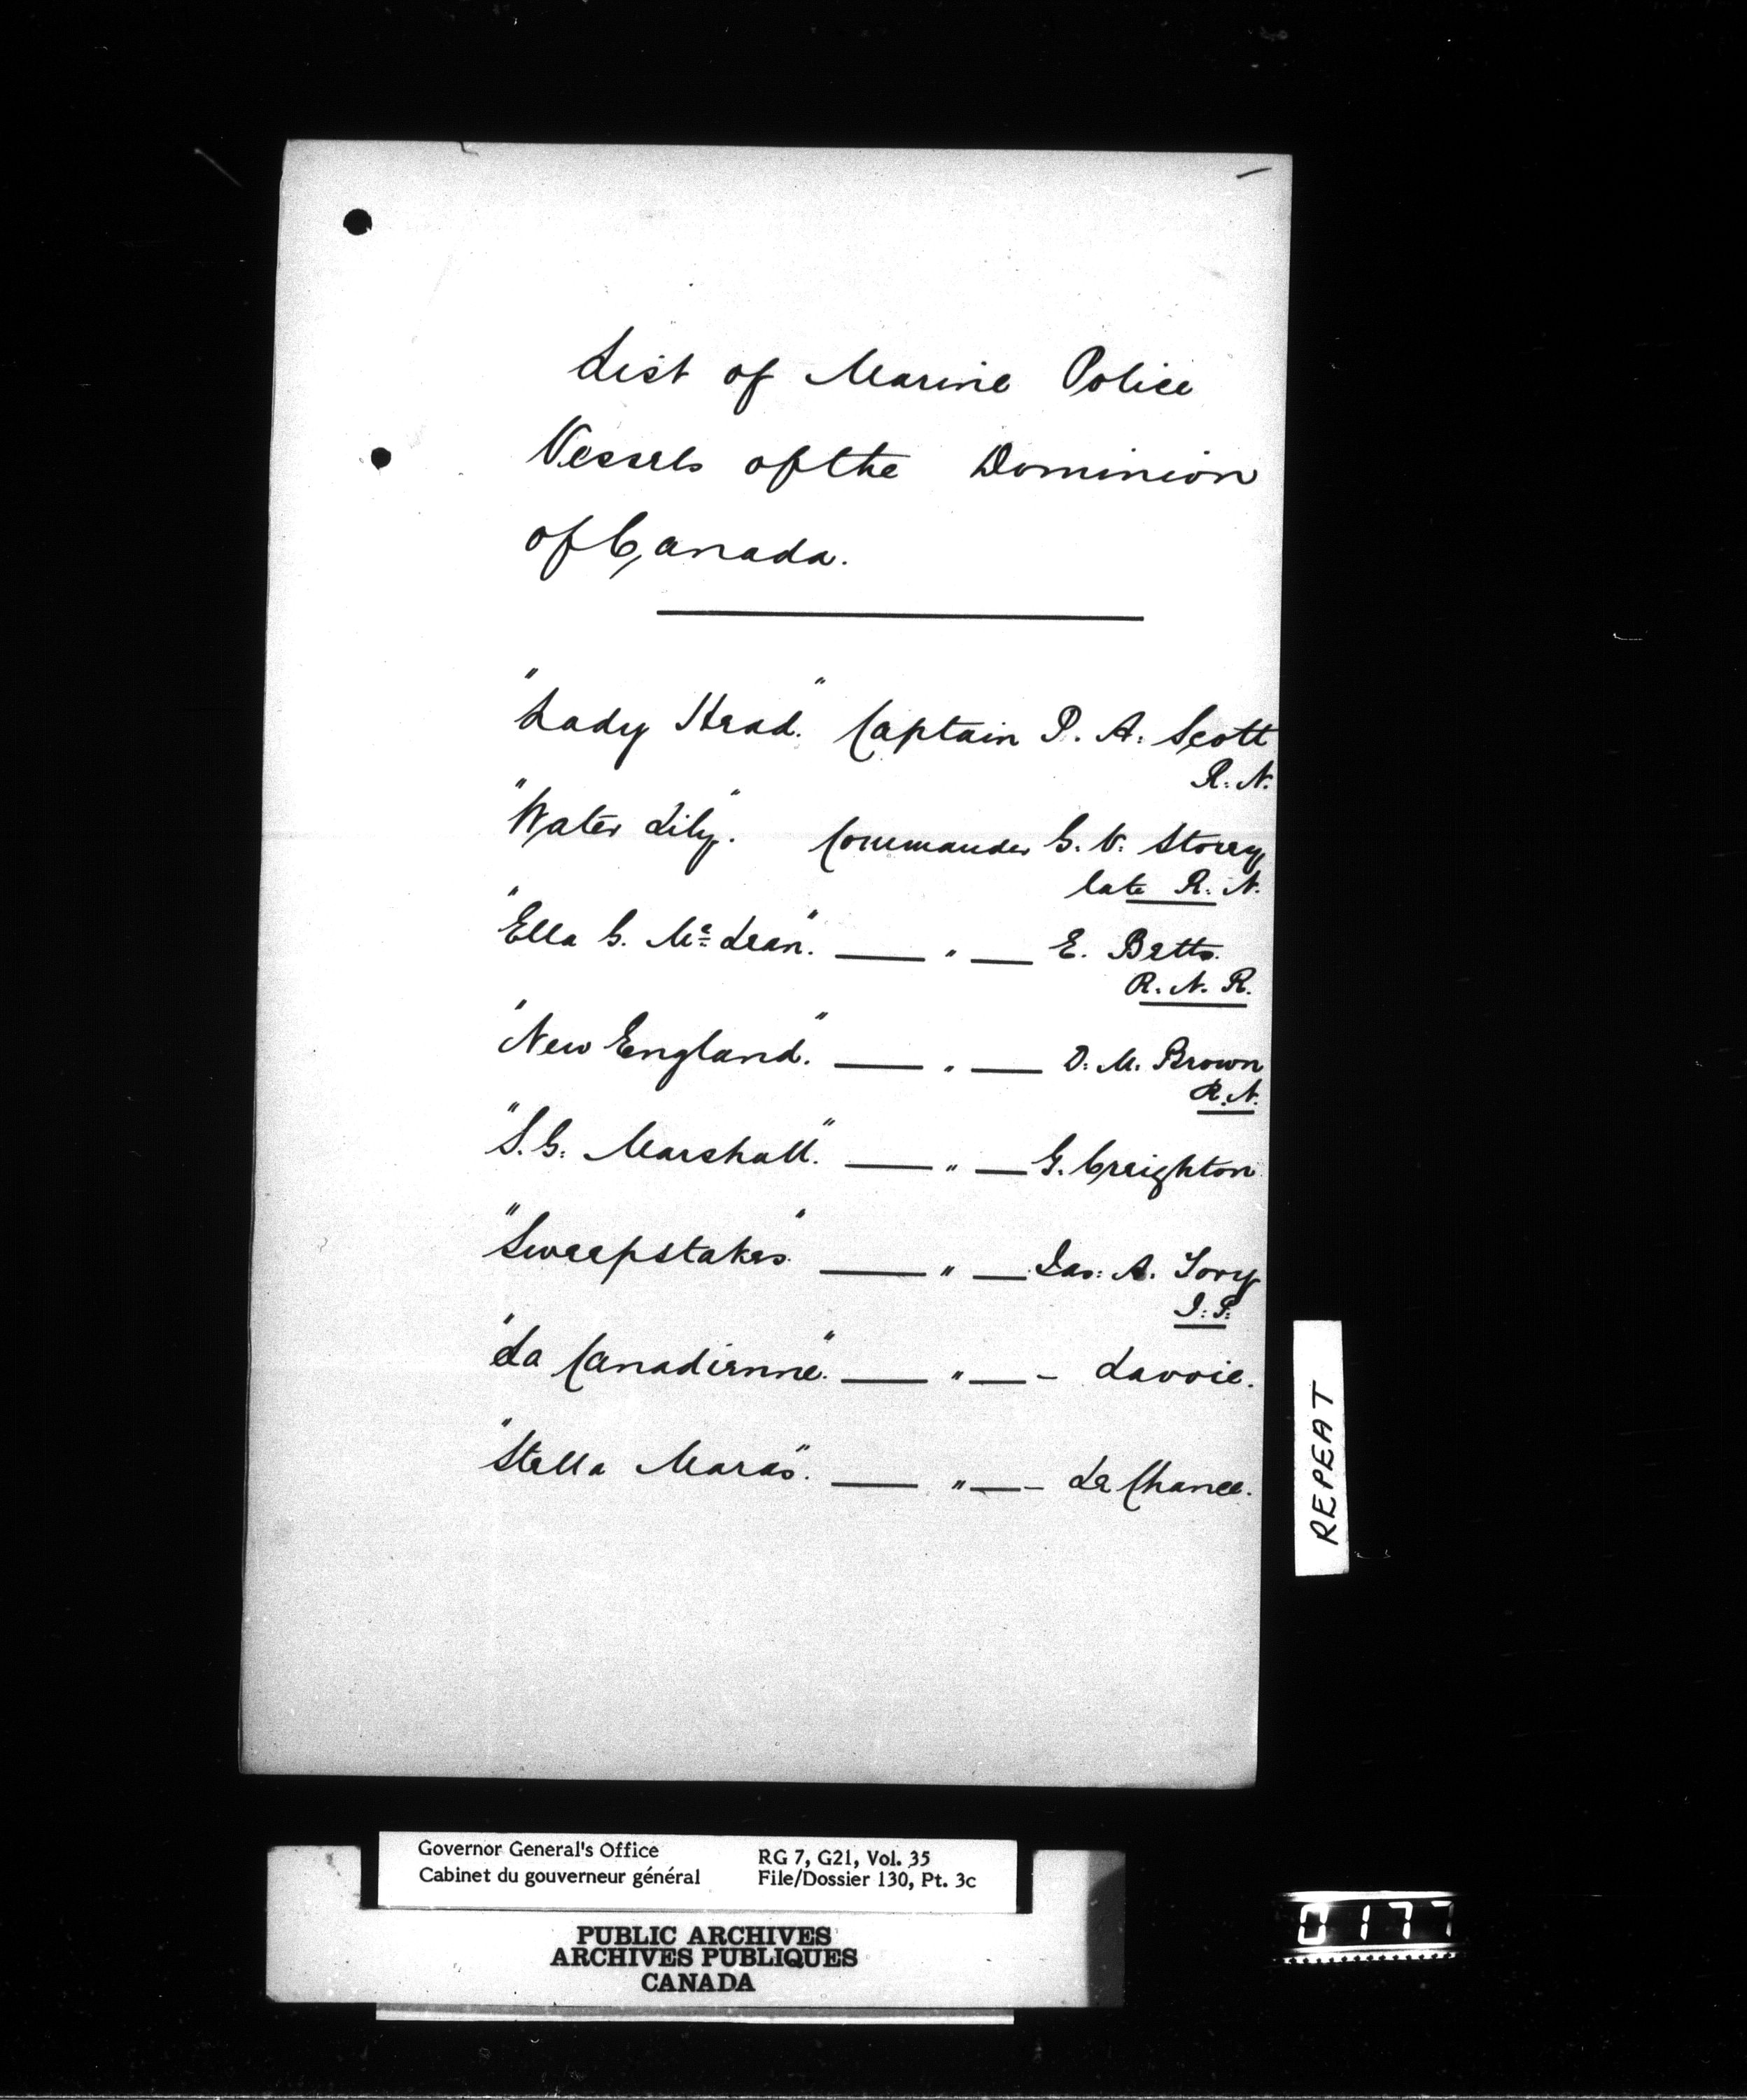 List of Marine Police
Vessels of the Dominion
of Canada.
"Lady Head." Captain P. A. Scott
R. N.
"Water Lily". Commander G. V. Story
late R. N.
"Ella G. Mc Lean". — " — E. Betts.
R. N. R.
"New England." — " — D. M. Brown
R. N.
"S. G. Marshall". — " — G. Creighton
"Sweepstakes" — " — Jas: A. Tory
J. P.
"La Canadienne". — " — - Lavoie.
"Stella Maras". — " — - La Chance.
REPEAT
Governor General's Office RG 7, G21, Vol. 35
Cabinet du gouverneur général File/Dossier 130, Pt. 3c
PUBLIC ARCHIVES
ARCHIVES PUBLIQUES
CANADA
0177